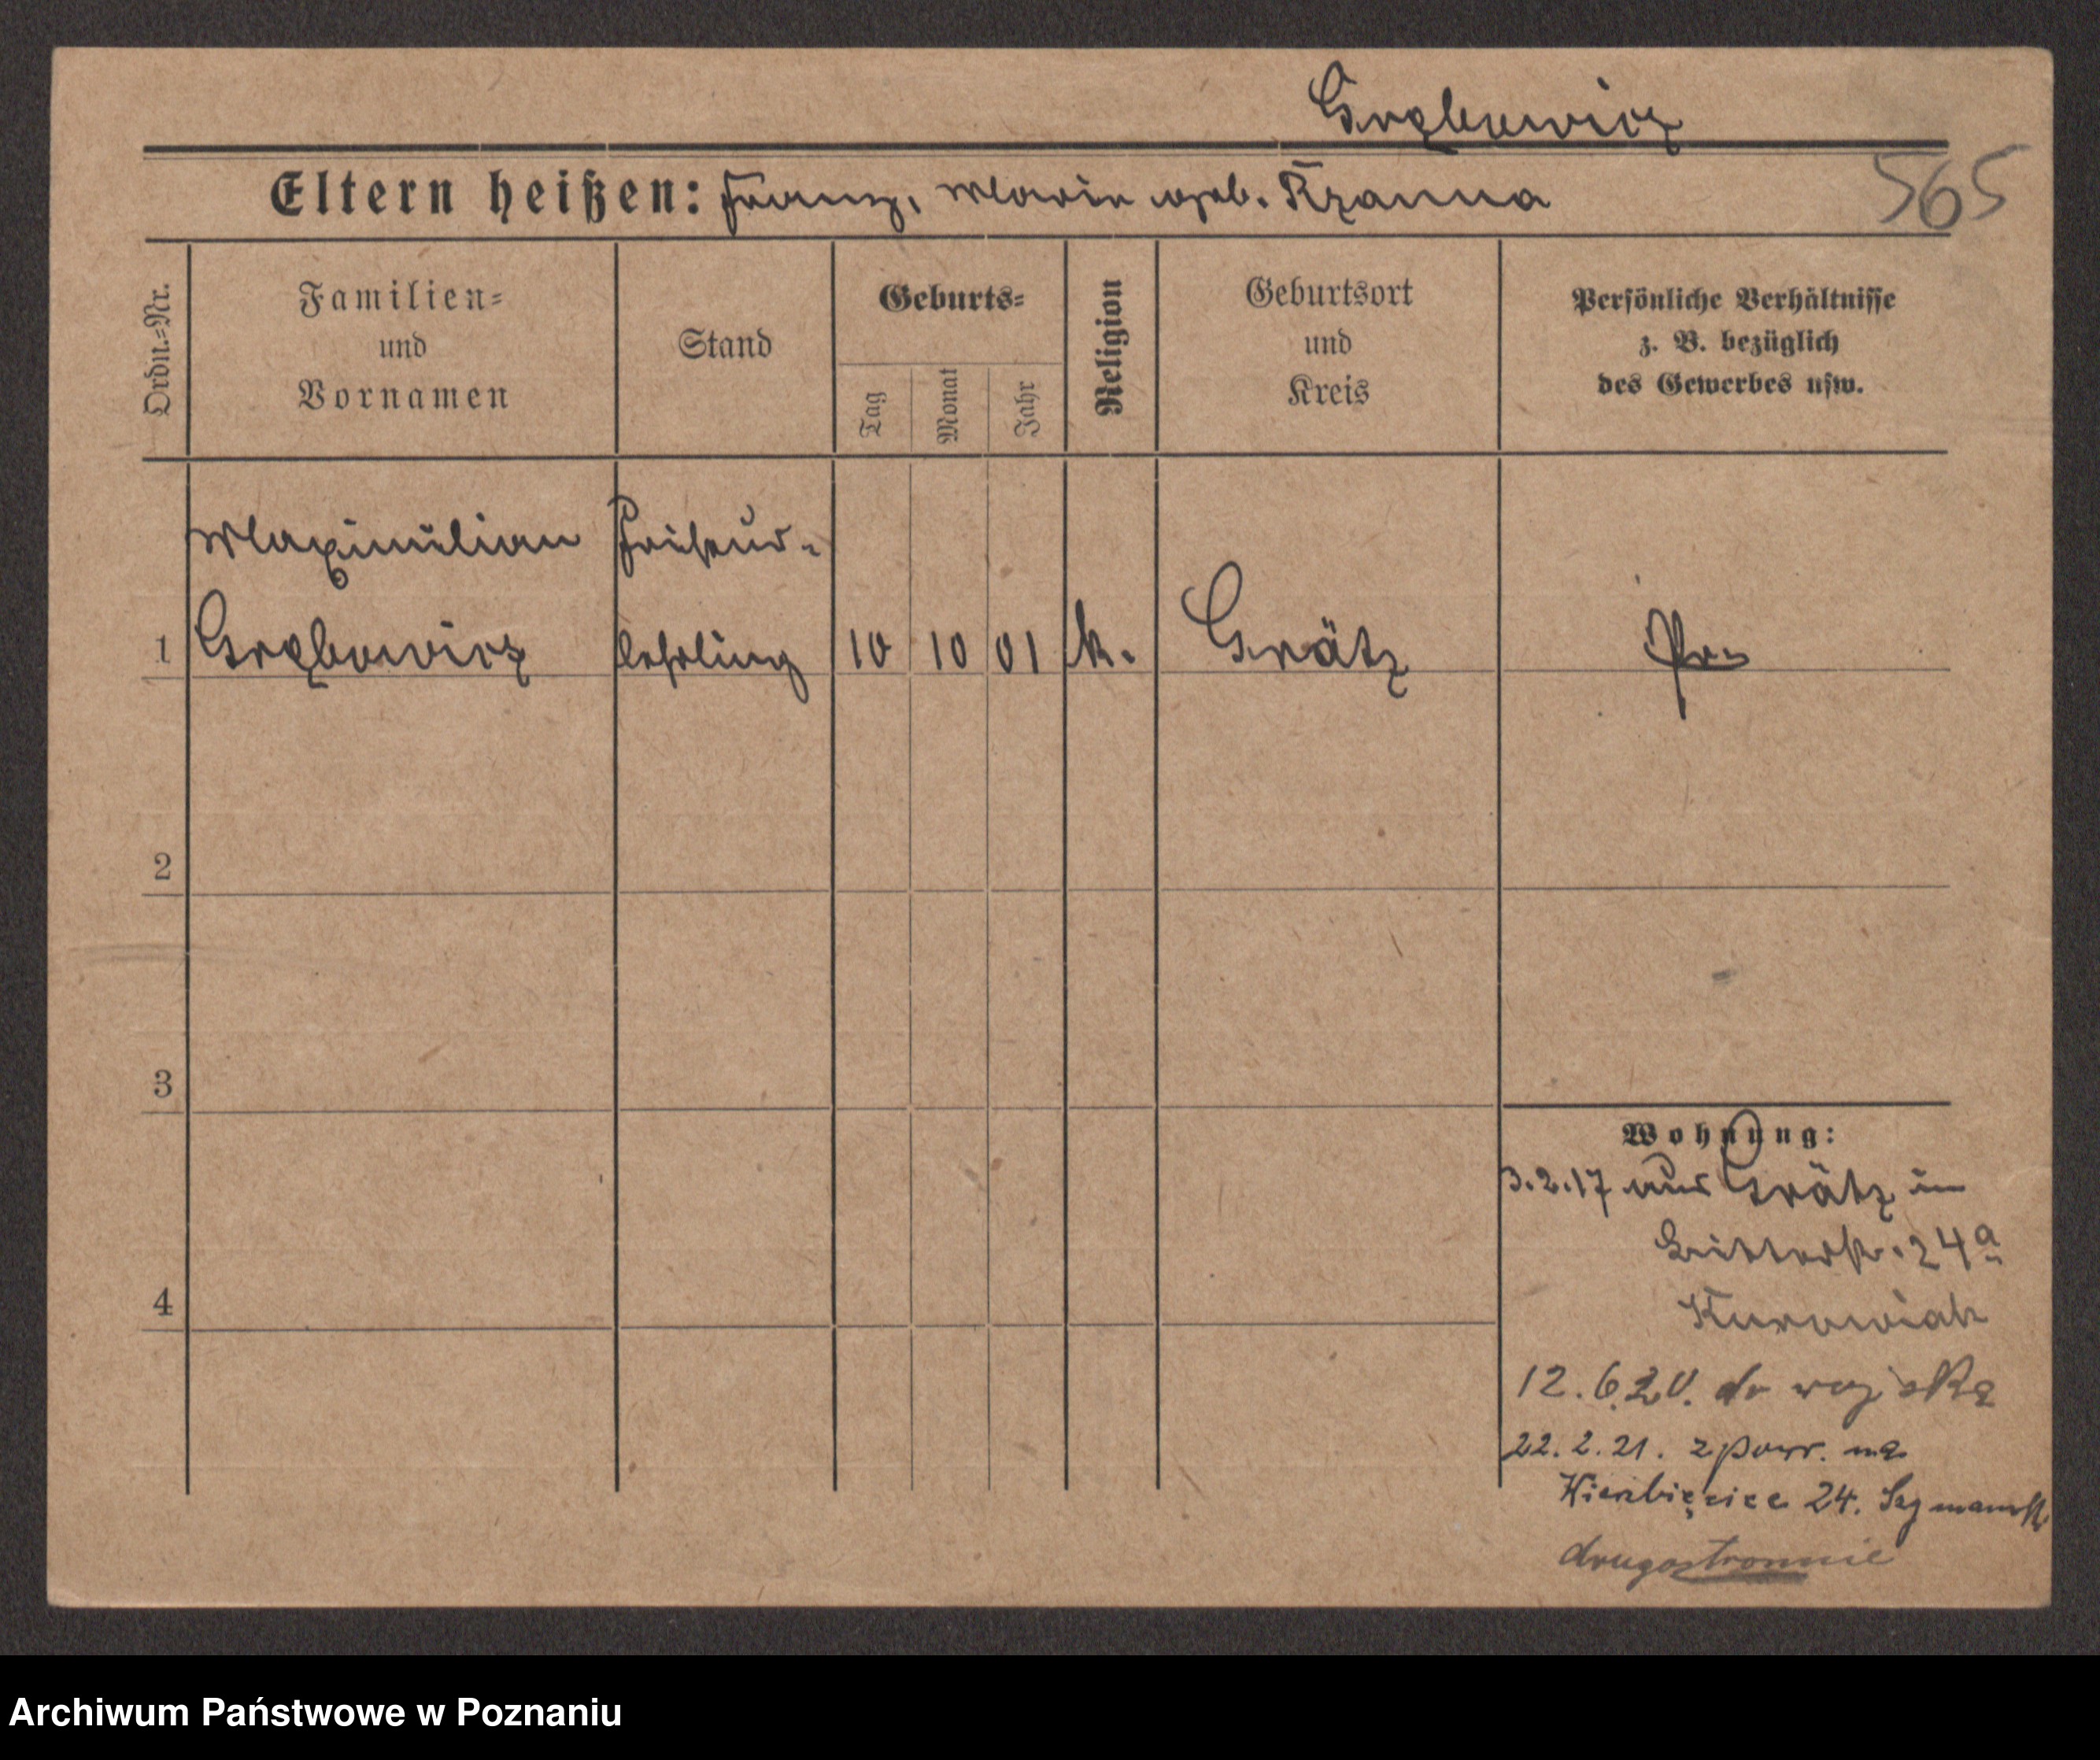 Grabowicz
565
Eltern heißen: Franz, Maria geb. Rzanna
Ordn.=Nr.
Familien=
und
Vornamen
Stand
Geburts=
Tag
Monat
Jahr
Religion
Geburtsort
und
Kreis
Persönliche Verhältnisse
z. B. bezüglich
des Gewerbes usw.
Maximilian Friseur-
1 Grabowicz lehrling 10 10 01 k. Grätz Pr.
2
3
4
Wohnung:
3.2.17 aus Grätz in
24a
Kurowiak
12.6.20. do wojska
22.2.21. z powr. na
Wierzbięcice 24.
drugostronnie
Archiwum Państwowe w Poznaniu